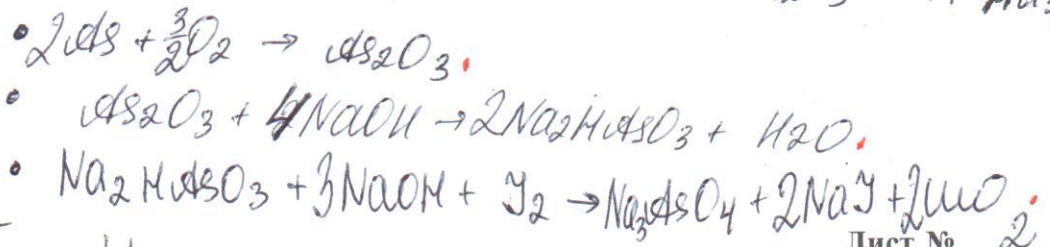 • 2As + 3/2 O2 → As2O3.
• As2O3 + 4NaOH → 2Na2HAsO3 + H2O.
• Na2HAsO3 + 3NaOH + J2 → Na3AsO4 + 2NaJ + 2H2O.
Лист №